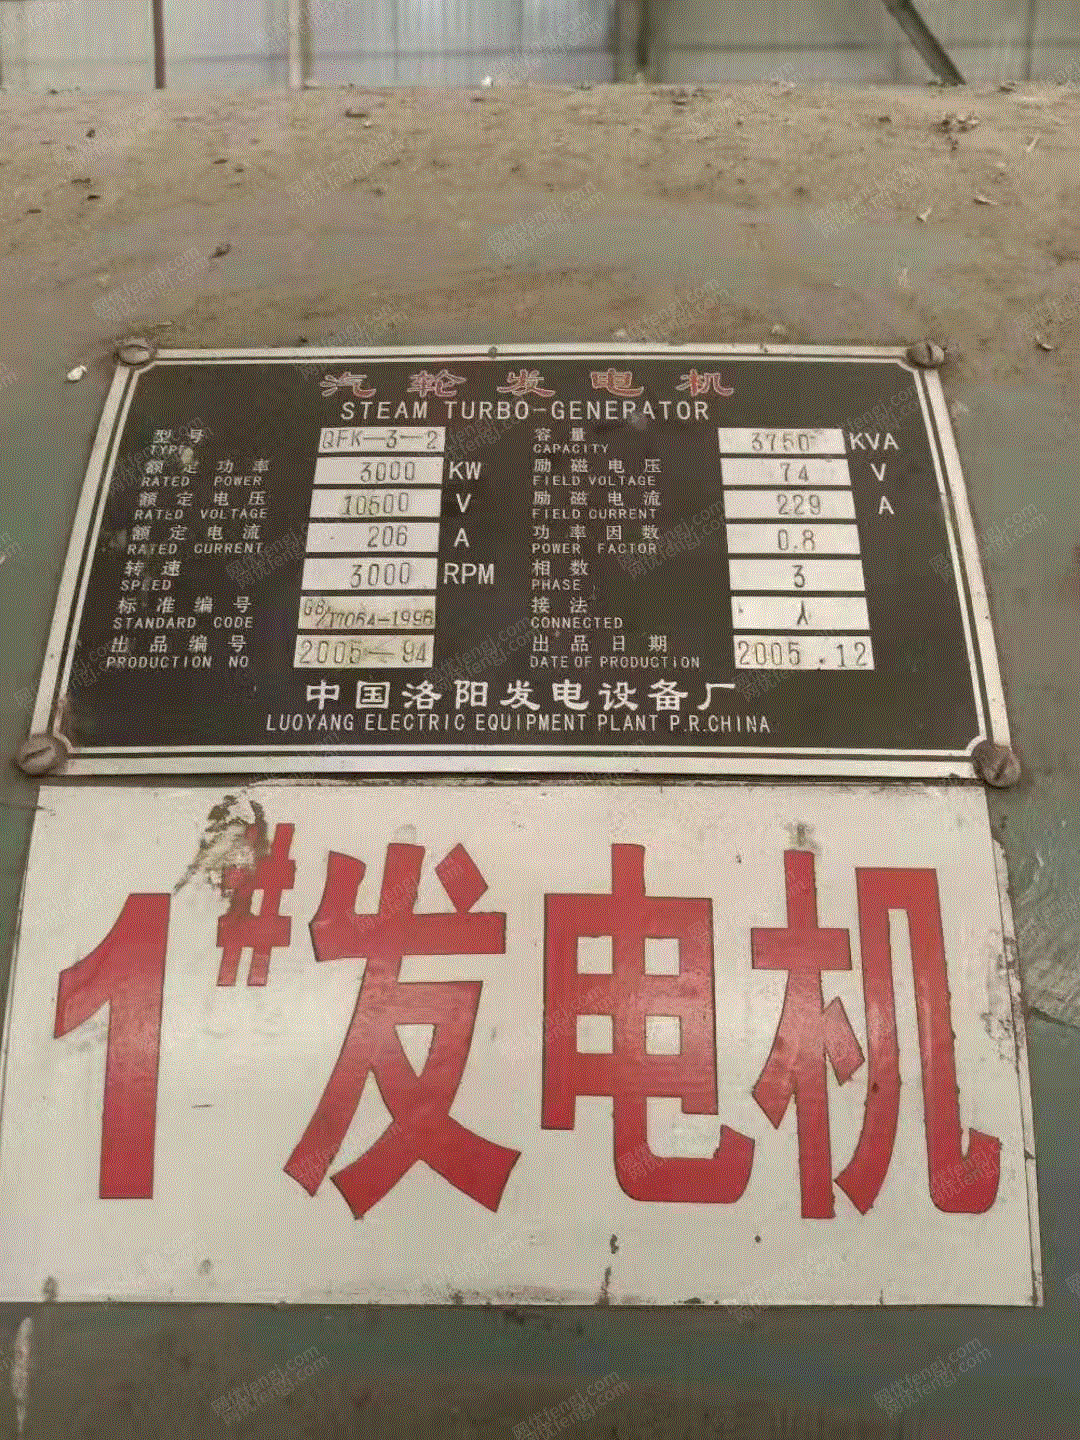 汽轮发电机
STEAM TURBO-GENERATOR
型号 QFK-3-2 容量 3750 KVA
TYPE CAPACITY
额定功率 3000 KW 励磁电压 74 V
RATED POWER FIELD VOLTAGE
额定电压 10500 V 励磁电流 229 A
RATED VOLTAGE FIELD CURRENT
额定电流 206 A 功率因数 0.8
RATED CURRENT POWER FACTOR
转速 3000 RPM 相数 3
SPEED PHASE
标准编号 GB/T7064-1996 接法 人
STANDARD CODE CONNECTED
出品编号 2005-94 出品日期 2005.12
PRODUCTION NO DATE OF PRODUCTION
中国洛阳发电设备厂
LUOYANG ELECTRIC EQUIPMENT PLANT P.R.CHINA
1#发电机